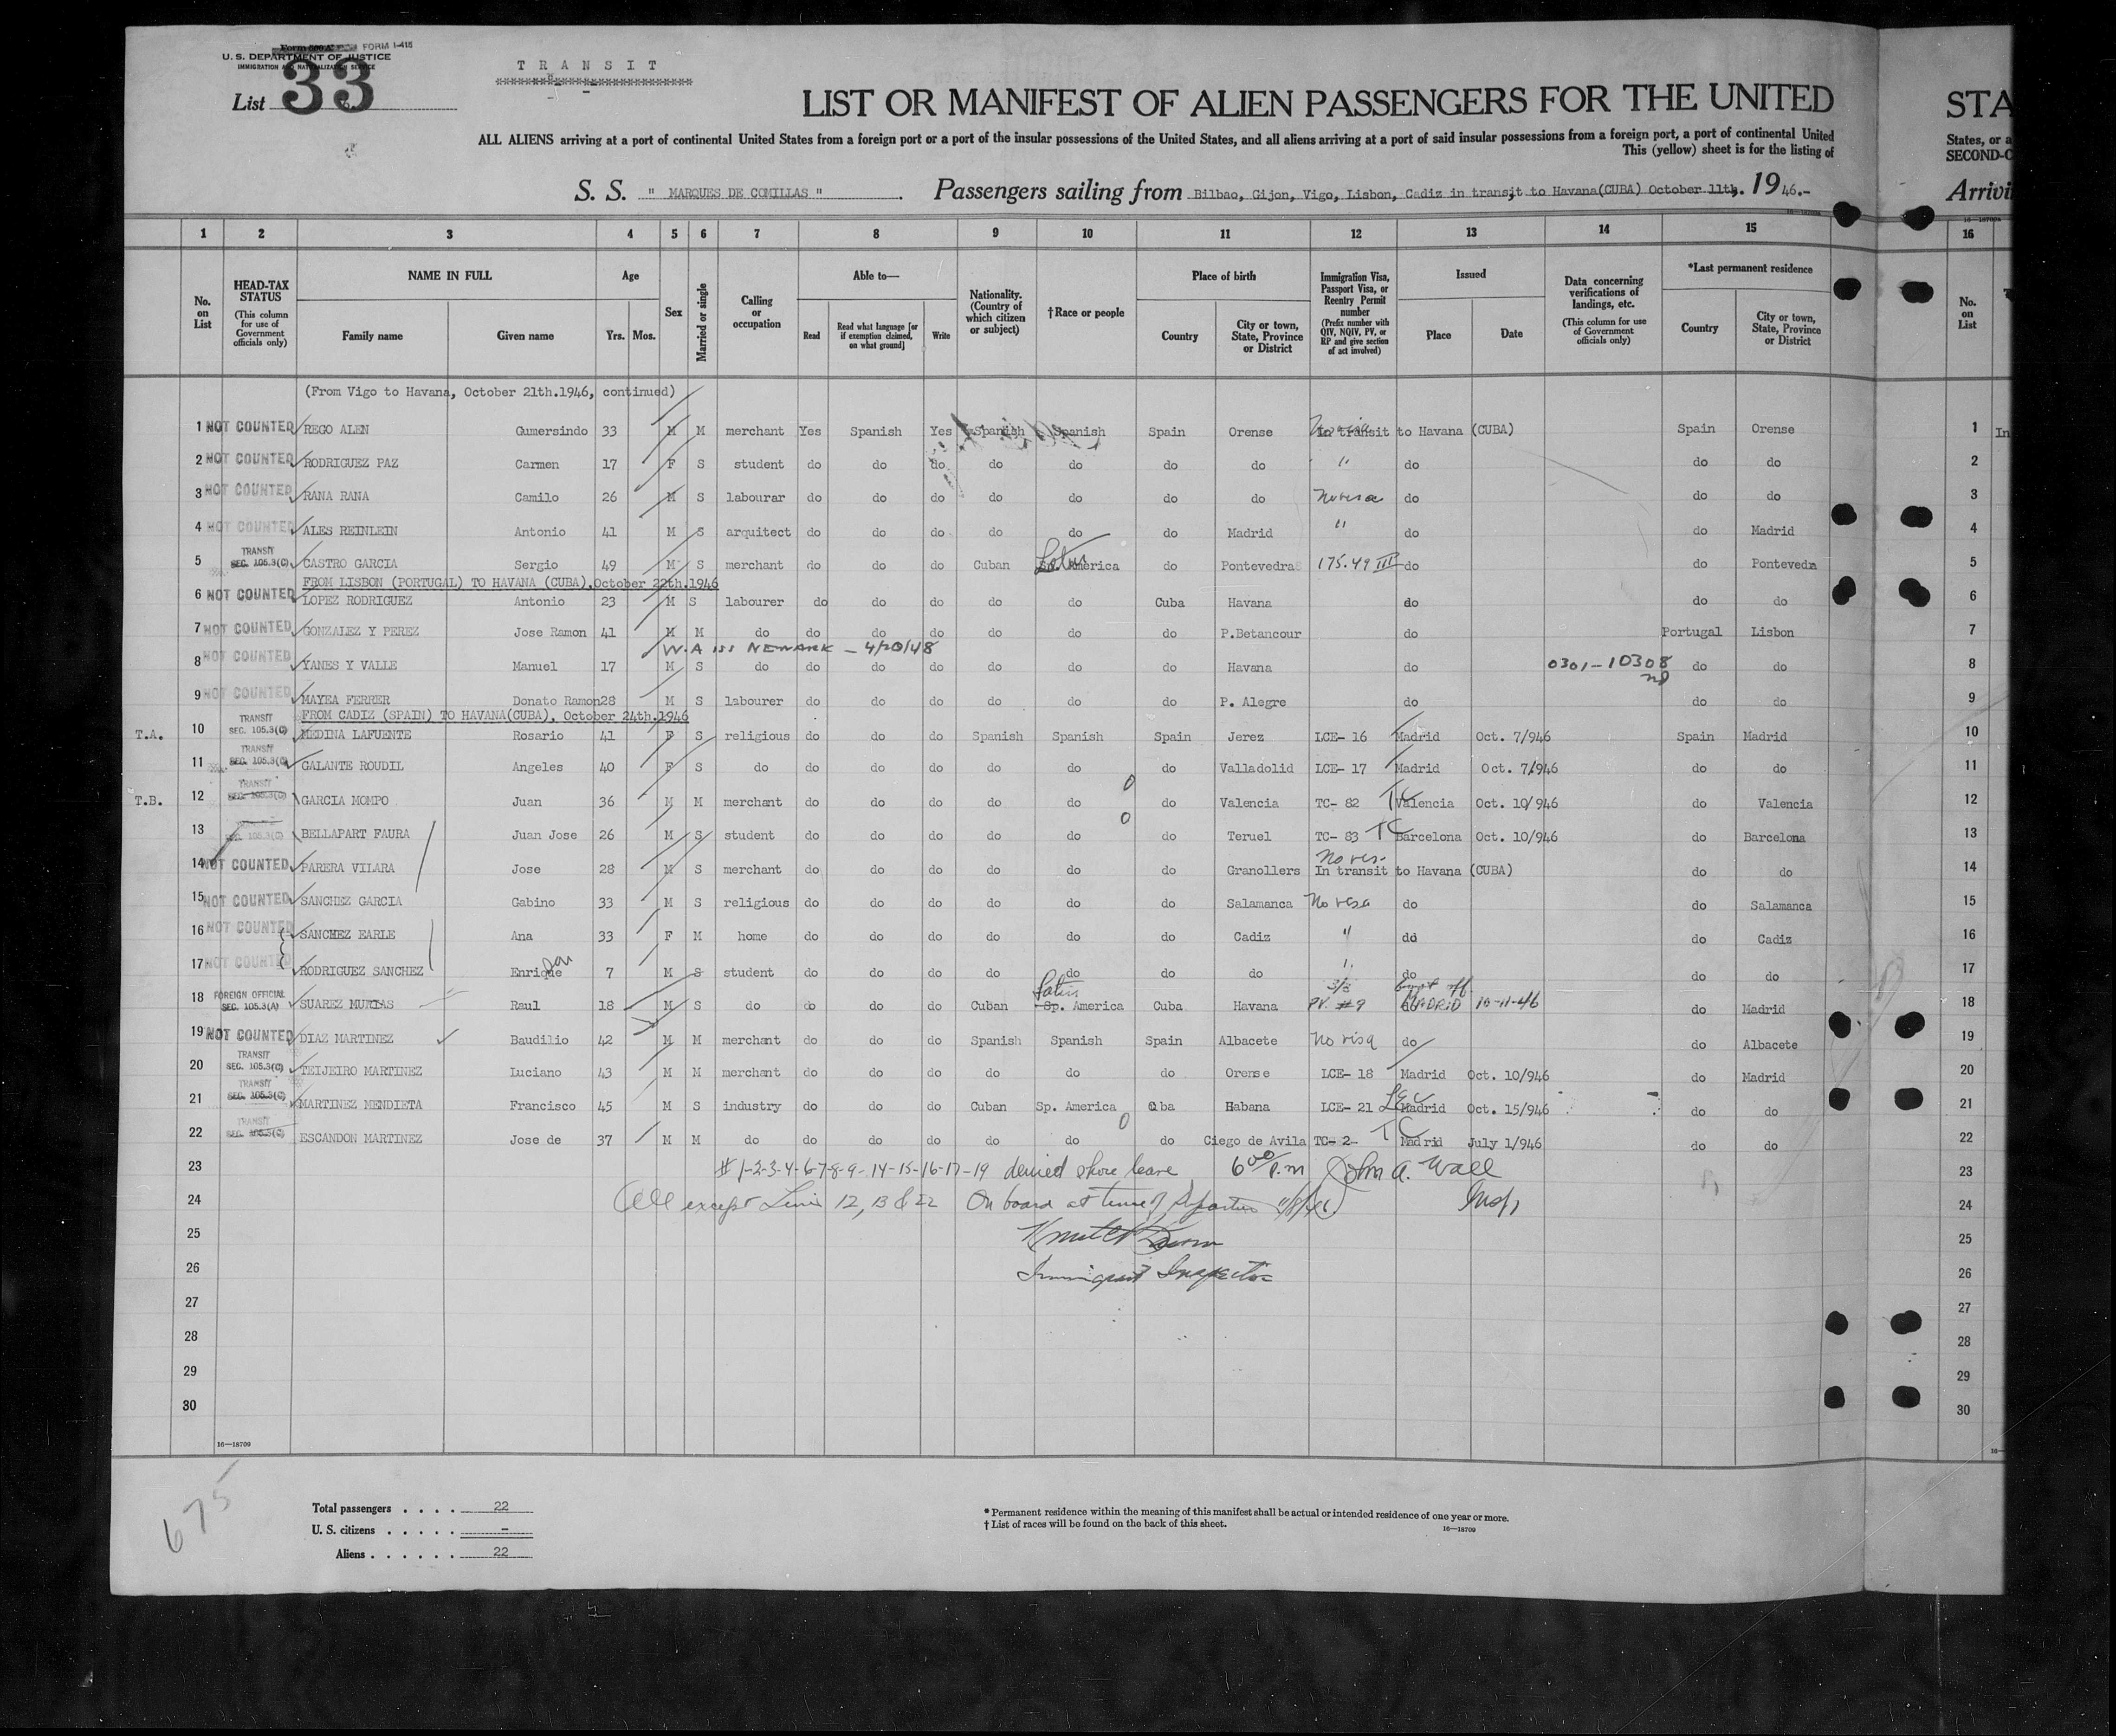 Form 500 A FORM I-415
U. S. DEPARTMENT OF JUSTICE
IMMIGRATION AND NATURALIZATION SERVICE
List 33
T R A N S I T
LIST OR MANIFEST OF ALIEN PASSENGERS FOR THE UNITED
STA
ALL ALIENS arriving at a port of continental United States from a foreign port or a port of the insular possessions of the United States, and all aliens arriving at a port of said insular possessions from a foreign port, a port of continental United
States, or a
This (yellow) sheet is for the listing of
SECOND-C
S. S. " MARQUES DE COMILLAS ". Passengers sailing from Bilbao, Gijon, Vigo, Lisbon, Cadiz in transit to Havana(CUBA) October 11th. 1946.-
Arrivi
1 2 3 4 5 6 7 8 9 10 11 12 13 14 15 16
No. on List
HEAD-TAX STATUS (This column for use of Government officials only)
NAME IN FULL
Family name
Given name
Age
Yrs. Mos.
Sex
Married or single
Calling or occupation
Able to—
Read
Read what language [or if exemption claimed, on what ground]
Write
Nationality. (Country of which citizen or subject)
†Race or people
Place of birth
Country
City or town, State, Province or District
Immigration Visa, Passport Visa, or Reentry Permit number (Prefix number with QIV, NQIV, PV, or RP and give section of act involved)
Issued
Place
Date
Data concerning verifications of landings, etc. (This column for use of Government officials only)
*Last permanent residence
Country
City or town, State, Province or District
No. on List
(From Vigo to Havana, October 21th.1946, continued)
1 NOT COUNTED REGO ALEN Gumersindo 33 M M merchant Yes Spanish Yes Spanish Spanish Spain Orense In transit to Havana (CUBA) Spain Orense 1 In
2 NOT COUNTED RODRIGUEZ PAZ Carmen 17 F S student do do do do do do do " do do do 2
3 NOT COUNTED RANA RANA Camilo 26 M S labourar do do do do do do do No visa do do do 3
4 NOT COUNTED ALES REINLEIN Antonio 41 M S arquitect do do do do do do Madrid " do do Madrid 4
5 TRANSIT SEC. 105.3(C) CASTRO GARCIA Sergio 49 M S merchant do do do Cuban Latin Sp. America do Pontevedra 175.49 III do do Pontevedra 5
FROM LISBON (PORTUGAL) TO HAVANA (CUBA),October 22th.1946
6 NOT COUNTED LOPEZ RODRIGUEZ Antonio 23 M S labourer do do do do do Cuba Havana do do do 6
7 NOT COUNTED GONZALEZ Y PEREZ Jose Ramon 41 M M do do do do do do do P.Betancour do Portugal Lisbon 7
W.A iss NEWARK — 4/20/48
8 NOT COUNTED YANES Y VALLE Manuel 17 M S do do do do do do do Havana do 0301-10308 do do 8
9 NOT COUNTED MAYEA FERRER Donato Ramon 28 M S labourer do do do do do do P. Alegre do do do 9
FROM CADIZ (SPAIN) TO HAVANA(CUBA), October 24th.1946
T.A. 10 TRANSIT SEC. 105.3(C) MEDINA LAFUENTE Rosario 41 F S religious do do do Spanish Spanish Spain Jerez LCE- 16 Madrid Oct. 7/946 Spain Madrid 10
11 TRANSIT SEC. 105.3(C) GALANTE ROUDIL Angeles 40 F S do do do do do do do Valladolid LCE- 17 Madrid Oct. 7/946 do do 11
T.B. 12 TRANSIT SEC. 105.3(C) GARCIA MOMPO Juan 36 M M merchant do do do do do 0 do Valencia TC- 82 TC Valencia Oct. 10/946 do Valencia 12
13 SEC. 105.3(C) BELLAPART FAURA Juan Jose 26 M S student do do do do do 0 do Teruel TC- 83 TC Barcelona Oct. 10/946 do Barcelona 13
14 NOT COUNTED PARERA VILARA Jose 28 M S merchant do do do do do do Granollers In transit to Havana (CUBA) do do 14
15 NOT COUNTED SANCHEZ GARCIA Gabino 33 M S religious do do do do do do Salamanca No visa do do Salamanca 15
16 NOT COUNTED SANCHEZ EARLE Ana 33 F M home do do do do do do Cadiz " do do Cadiz 16
17 NOT COUNTED RODRIGUEZ SANCHEZ Enrique son 7 M S student do do do do do do do do do do 17
18 FOREIGN OFFICIAL SEC. 105.3(A) SUAREZ MURIAS Raul 18 M S do do do do Cuban Latin Sp. America Cuba Havana 3/3 PV. #9 MADRID 10-11-46 do Madrid 18
19 NOT COUNTED DIAZ MARTINEZ Baudilio 42 M M merchant do do do Spanish Spanish Spain Albacete No visa do do Albacete 19
20 TRANSIT SEC. 105.3(C) TEIJEIRO MARTINEZ Luciano 43 M M merchant do do do do do do Orense LCE- 18 Madrid Oct. 10/946 do Madrid 20
21 TRANSIT SEC. 105.3(C) MARTINEZ MENDIETA Francisco 45 M S industry do do do Cuban Sp. America Cuba Habana LCE- 21 Madrid Oct. 15/946 do do 21
22 TRANSIT SEC. 105.3(C) ESCANDON MARTINEZ Jose de 37 M M do do do do do do 0 do Ciego de Avila TC- 2- TC Madrid July 1/946 do do 22
23 #1-2-3-4-6-7-8-9-14-15-16-17-19 denied shore leave 6 00 P.m John A. Wall 23
24 All except Lines 12, 13 & 22 On board at time of departure Insp 24
25 25
26 Immigrant Inspector 26
27 27
28 28
29 29
30 30
16—18709
675
Total passengers . . . . 22
U. S. citizens . . . . . -
Aliens . . . . . . 22
* Permanent residence within the meaning of this manifest shall be actual or intended residence of one year or more.
† List of races will be found on the back of this sheet.
16—18709